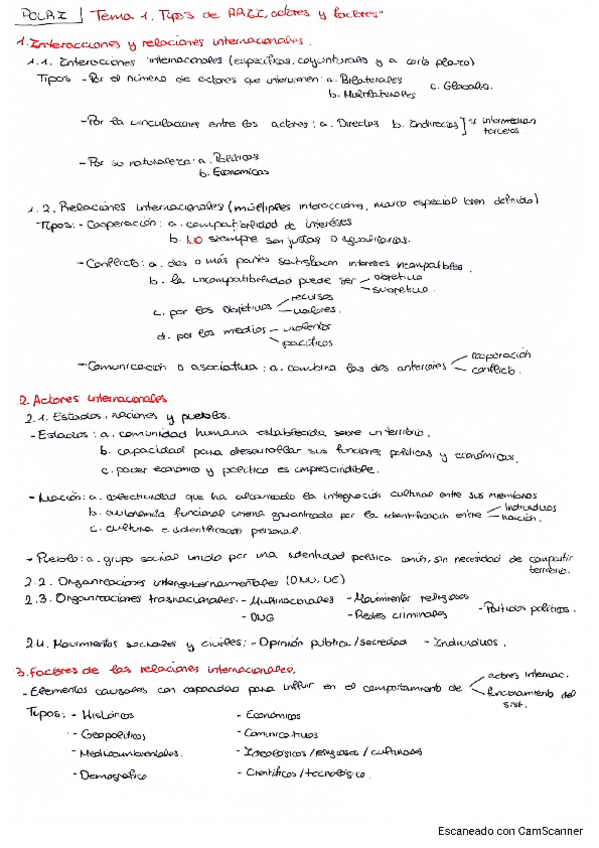 POLAI | Tema 1. Tipos de RRII, actores y factores"
1. Interacciones y relaciones internacionales.
1.1. Interacciones internacionales (específicas, coyunturales y a corto plazo)
Tipos - Por el número de actores que intervienen: a. Bilaterales
b. Multilaterales
c. Globales.
- Por la vinculaciones entre los actores: a. Directas b. Indirectas] intermedian
terceros
- Por su naturaleza: a. Políticas
b. Económicas
1.2. Relaciones internacionales (múltiples interacciones, marco espacial bien definido)
Tipos: - Cooperación: a. compatibilidad de intereses
b. NO siempre son justas o igualitarias.
- Conflicto: a. dos o más partes satisfacen intereses incompatibles.
b. la incompatibilidad puede ser - objetiva
- subjetiva.
c. por los objetivos - recursos
- valores.
d. por los medios - violentos
- pacíficos
- Comunicación o asociativa: a. combina las dos anteriores - cooperación
- conflicto.
2. Actores internacionales
2.1. Estados, naciones y pueblos.
- Estados: a. comunidad humana establecida sobre un territorio.
b. capacidad para desarrollar sus funciones políticas y económicas.
c. poder económico y político es imprescindible.
- Nación: a. colectividad que ha alcanzado la integración cultural entre sus miembros
b. autonomía funcional interna garantizada por la identificación entre - individuos
- nación.
c. cultura e identificación personal.
- Pueblo: a. grupo social unido por una identidad política común, sin necesidad de compartir
territorio.
2.2. Organizaciones intergubernamentales (ONU, UE)
2.3. Organizaciones trasnacionales: - Multinacionales - Movimientos religiosos
- ONG - Redes criminales - Partidos políticos.
2.4. Movimientos sociales y civiles: - Opinión pública/sociedad - Individuos.
3. Factores de las relaciones internacionales.
- Elementos causales con capacidad para influir en el comportamiento de - actores internac.
- funcionamiento del
sist.
Tipos: - Históricos - Económicos
- Geopolíticos - Comunicativos
- Medioambientales. - Ideológicos/religiosos/culturales
- Demográfico - Científicos/tecnológico.
Escaneado con CamScanner